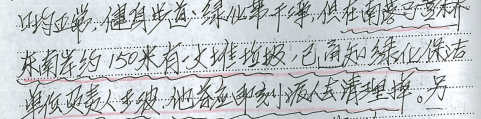 口均正常，健身步道、绿化带干净，但在南
东南岸约150米有一大堆垃圾，已通知绿化保洁
单位负责人去彼，他答应即刻派人去清理掉。另